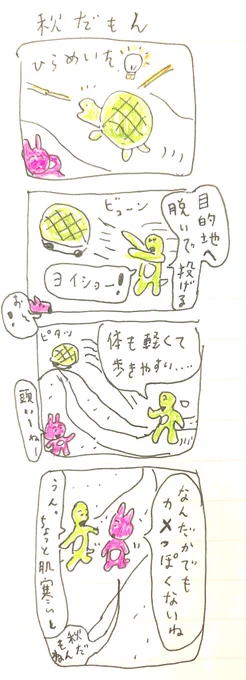 秋だもん
ひらめいた
目的地へ
脱いで投げる
ビューン
ヨイショー！
お！
ピタッ
体も軽くて
歩きやすい…..
頭いーねー
なんだかでも
カメっぽくないね
うん。ちょっと肌寒いし
秋だ
もんね